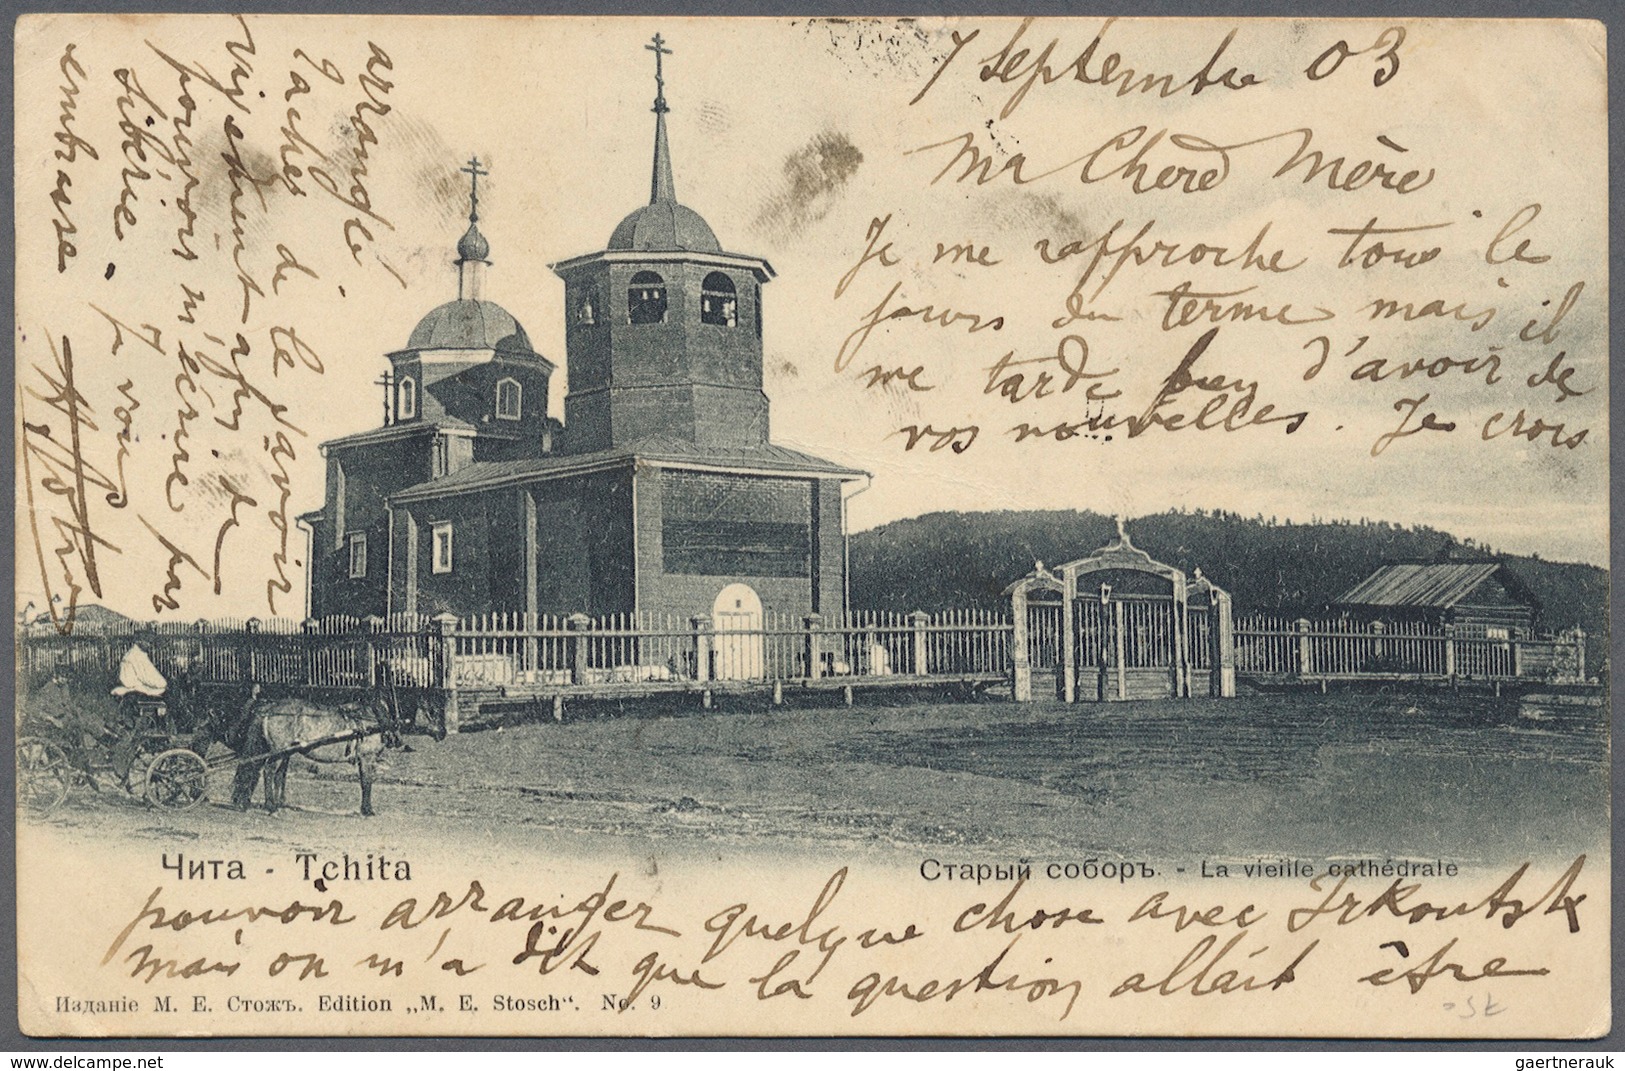 7 Septembre 03
Ma Chere Mère
Je me rapproche tous le
jours du terme mais il
me tarde d'avoir de
vos nouvelles. Je crois
Чита - Tchita
Старый соборъ. - La vieille cathédrale
pouvoir arranger quelque chose avec Irkoutsk
mais on m'a dit que la question allait être
Изданіе М. Е. Стожъ. Edition „M. E. Stosch“. No. 9
arrangé
tachez de le savoir
de
pouvois m'écrire par
Sibérie. Je vous
embrasse
gaertnerauk